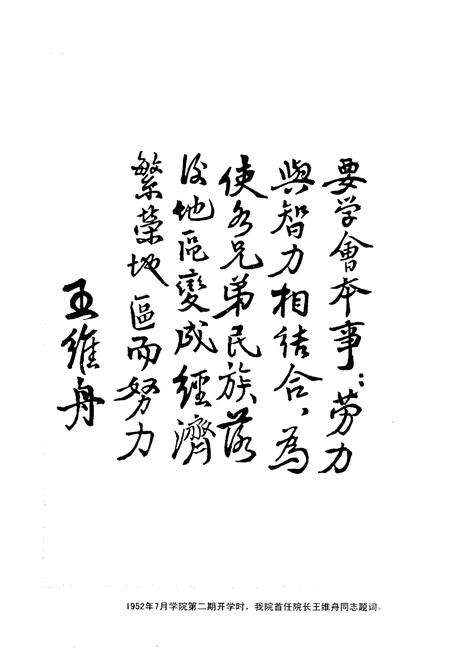 要学會本事：劳力
與智力相结合，為
使各兄弟民族落
後地區變成經濟
繁荣地區而努力
王維舟
1952年7月学院第二期开学时，我院首任院长王维舟同志题词。